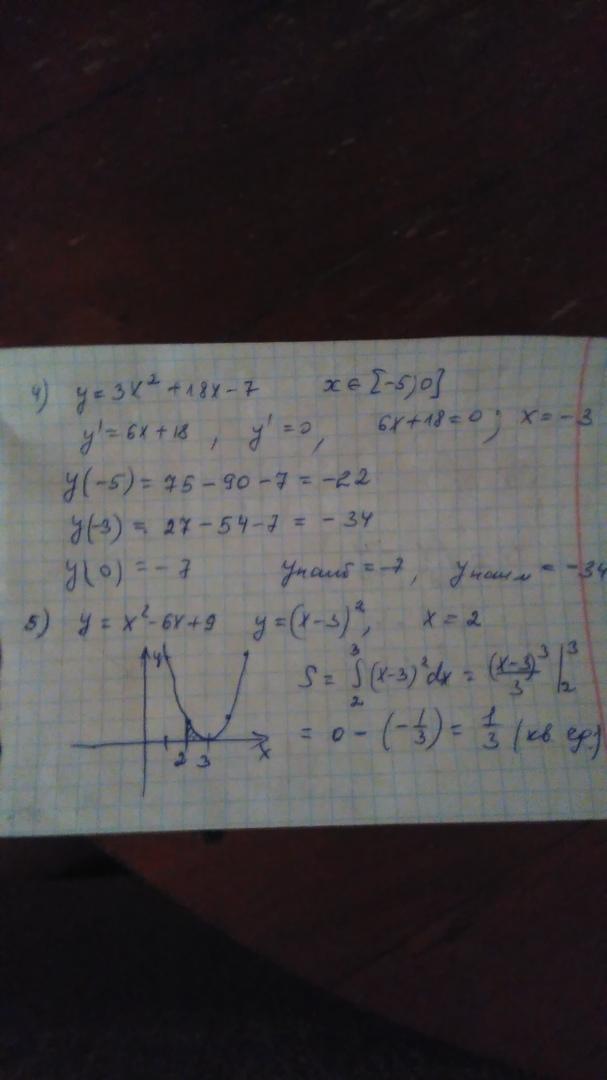 4) y = 3x² + 18x - 7 x ∈ [-5; 0]
y' = 6x + 18 , y' = 0, 6x + 18 = 0 ; x = -3
y(-5) = 75 - 90 - 7 = -22
y(-3) = 27 - 54 - 7 = -34
y(0) = -7 y наиб = -7, y наим = -34
5) y = x² - 6x + 9 y = (x-3)², x = 2
y
2 3 x
S = ∫₂³ (x-3)² dx = (x-3)³/3 |₂³
= 0 - (-1/3) = 1/3 (кв ед.)